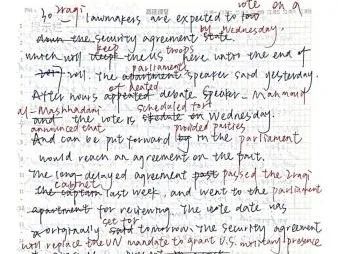 Iraqi vote on a
So lawmakers are expected to too by Wednesday.
down the security agreement state
keep troops
which will deeph the us here until the end of
parliament
2011 roll. The apartment speaker said yesterday.
of heated
After hours appeted debate speaker Mahmoud
al-Mashhadani scheduled for
and the vote is skodute on Wednesday.
announced that provided parties
And can be put forward by in the parliament
would reach an agreement on the pact.
The long-delayed agreement past passed the Iraqi
cabinet
the captain last week, and went to the parliament
apartment for reviewing. The vote date was
set for
a originally said tomorrow. The security agreement
will replace the UN mandate to grant U.S. military presence